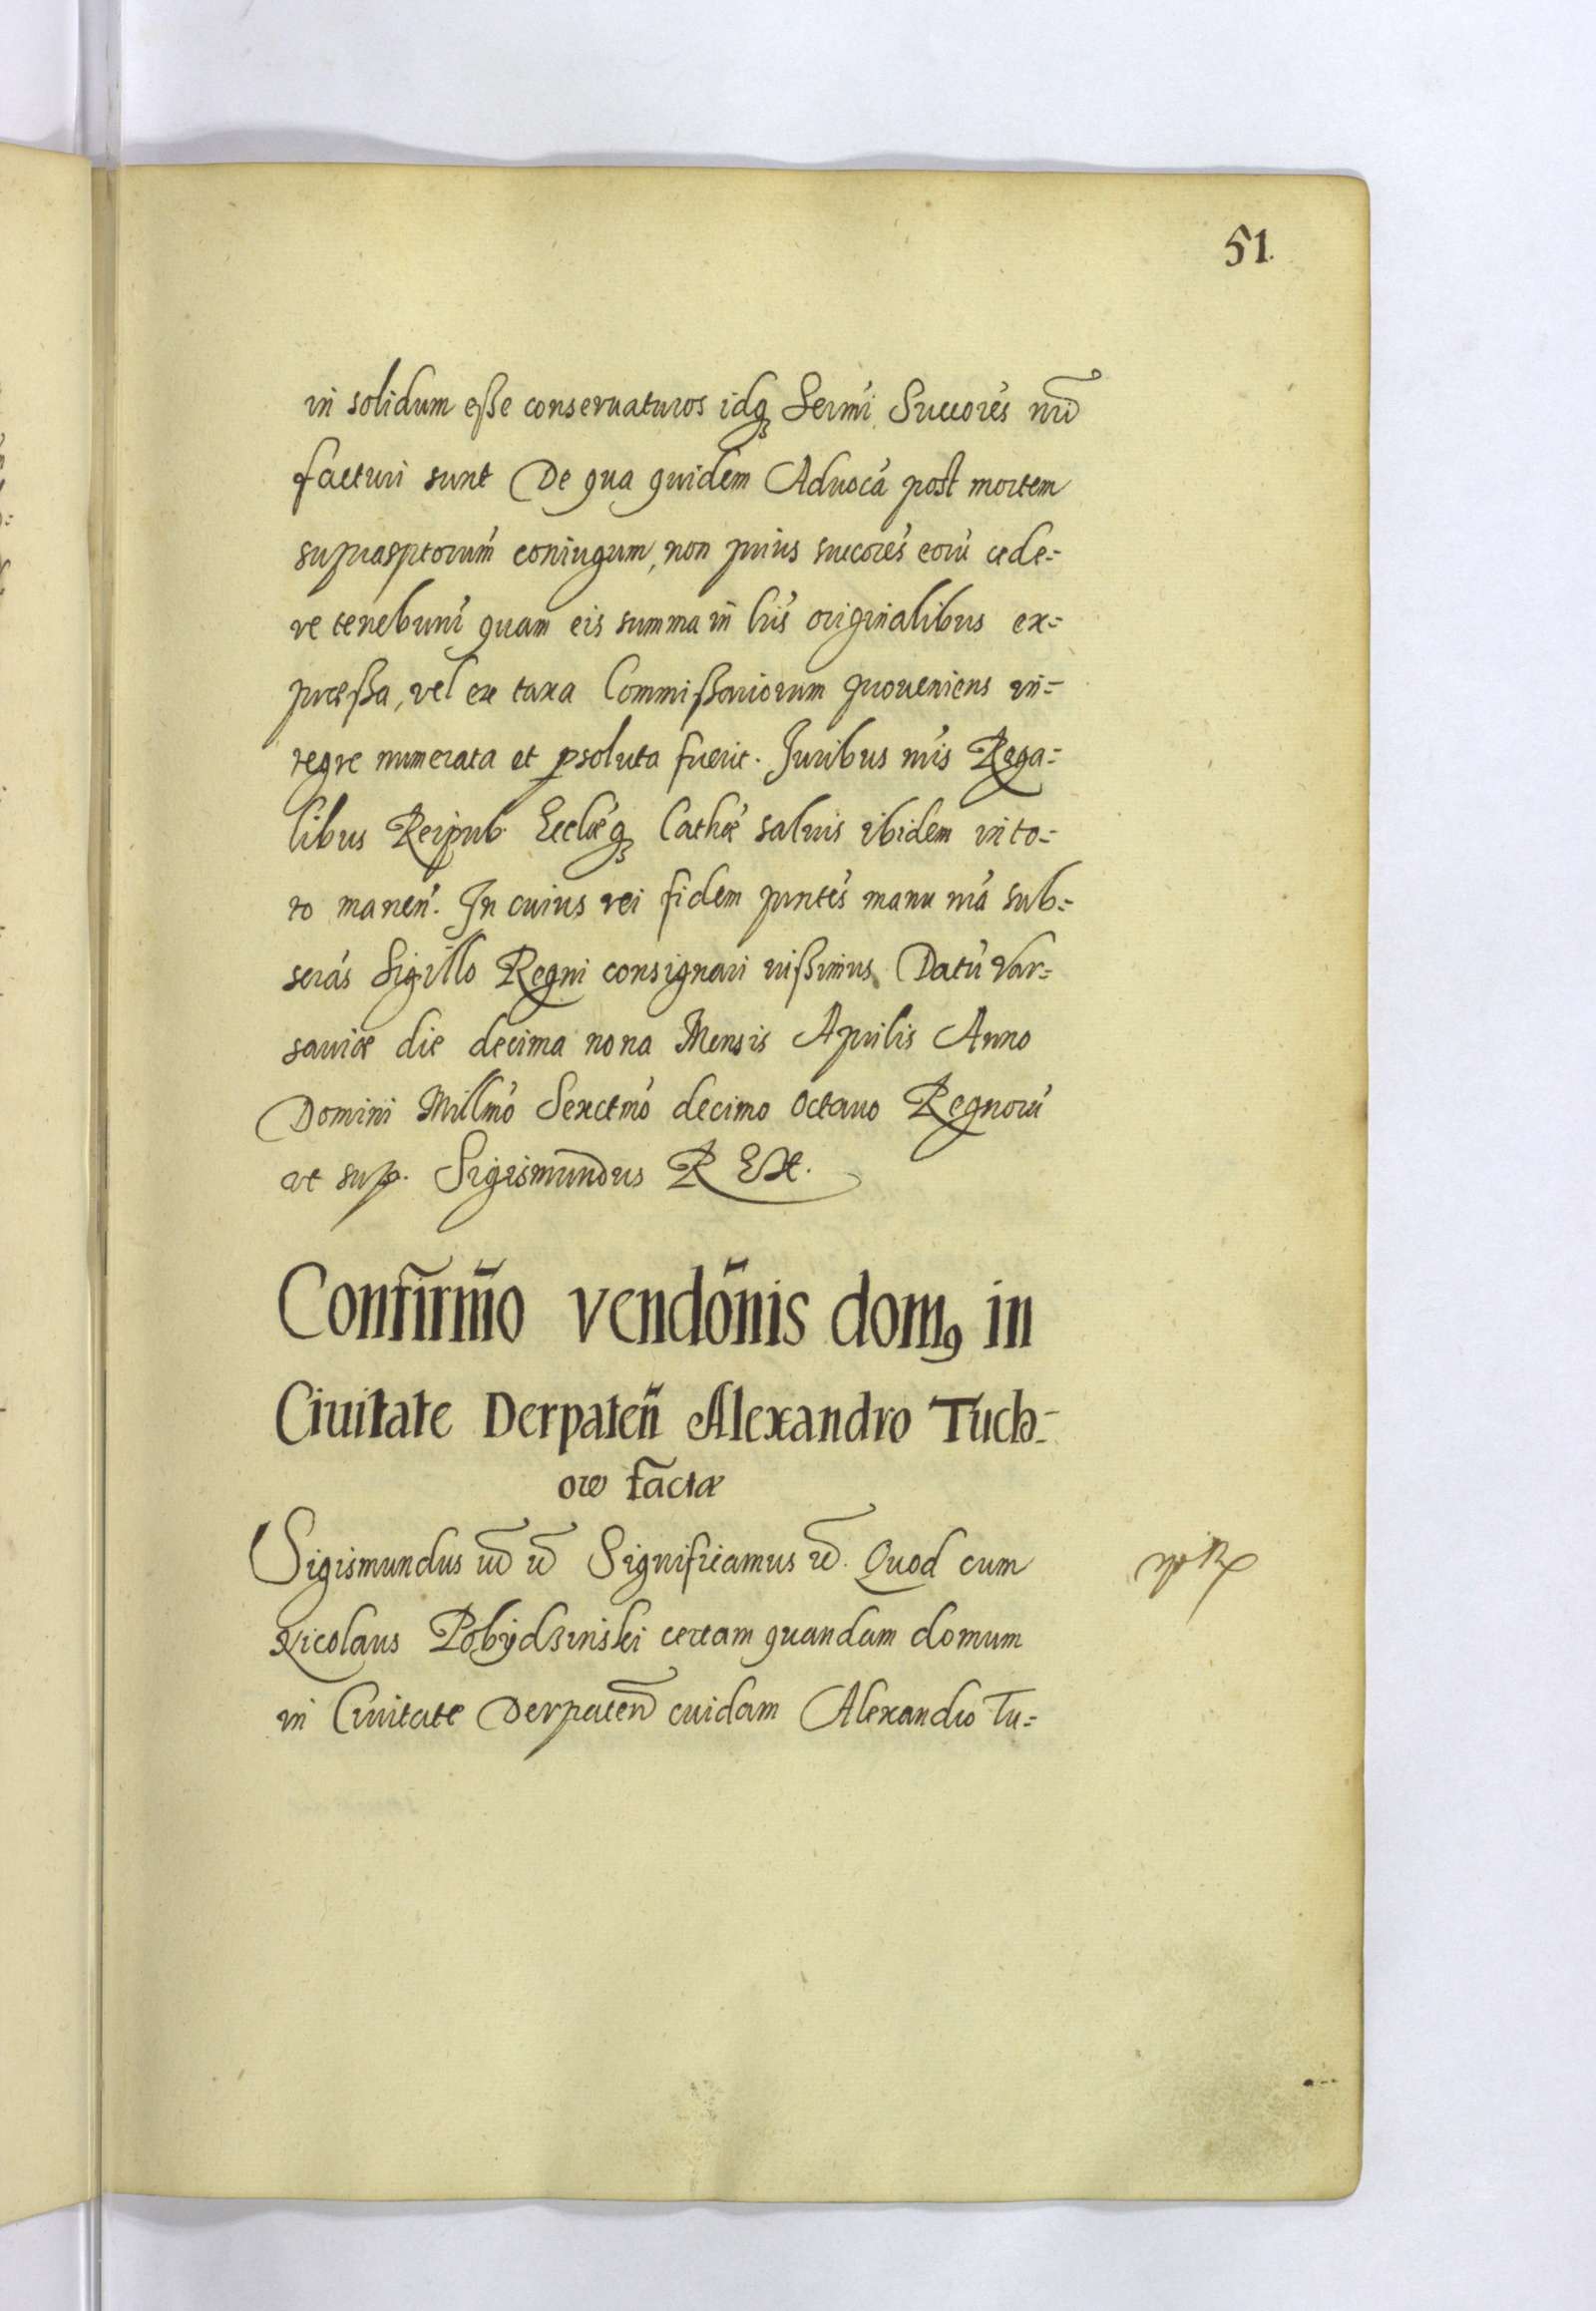 51.
in solidum esse conseruaturos idq₃ Sermi Succores nr̃i
facturi sunt De qua quidem Aduoca post mortem
supraspτorum coniugum, non prius succores eorũ cede=
re tenebunt quam eis summa in lris originalibus ex=
pressa, vel ex taxa Commissariorum proueniens in=
tegre numerata et psoluta fuerit. Juribus nris Rega=
libus Reipub. Ecclæq₃ Cathæ saluis ibidem in to=
to manen. In cuius rei fidem pntes manu nra sub=
scras Sigillo Regni consignari iussimus. Datũ Var=
sauiæ die decima nona Mensis Aprilis Anno
Domini Millmo Sexctmo decimo Octauo Regnorũ
ut sup. Sigismundus REX.
Confirm̃o vendõnis domꝰ in
Ciuitate Derpateñ Alexandro Tuch-
ore factæ
Sigismundus Significamus Quod cum
Nicolaus Pobydzinski certam quandam domum
in Ciuitate Derpateñ cuidam Alexandro Tu=